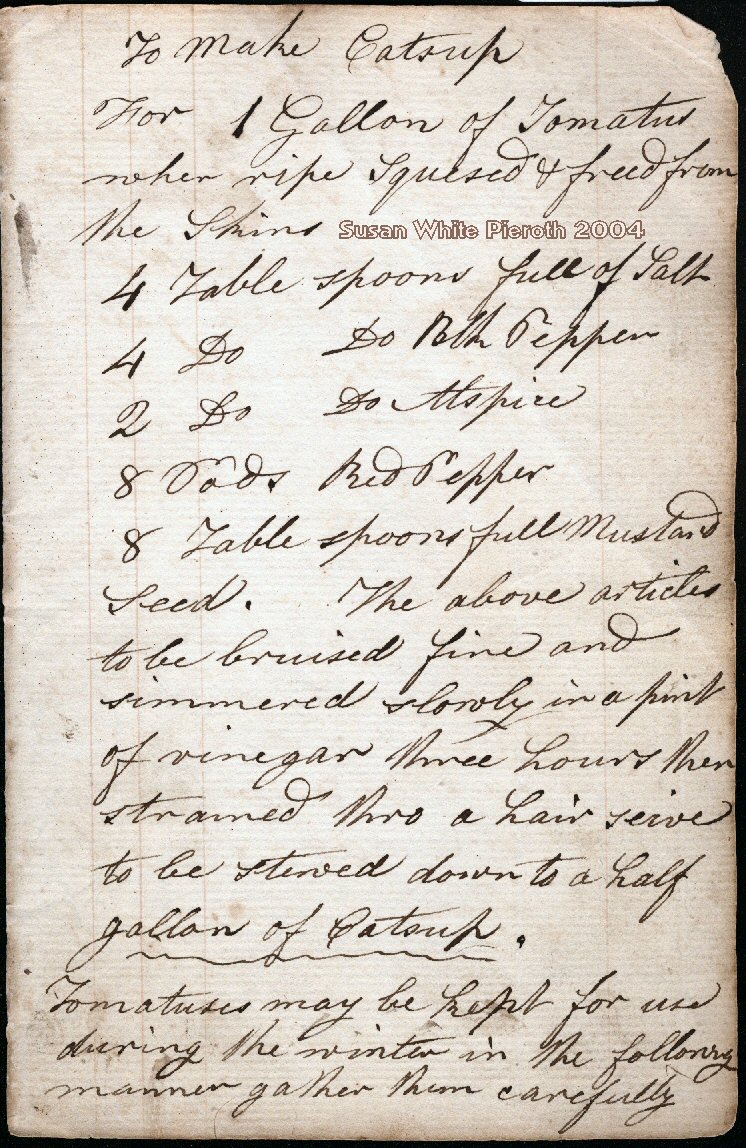 To Make Catsup
For 1 Gallon of Tomatus
when ripe Squesed & freed from
the Skins
Susan White Pieroth 2004
4 Table spoons full of Salt
4 Do Do Blk Pepper
2 Do Do Alspice
8 Pods Red Pepper
8 Table spoons full Mustard
Seed. The above articles
to be bruised fine and
simmered slowly in a pint
of vinegar three hours then
strained thro a hair seive
to be stewed down to a half
gallon of Catsup.
Tomatuses may be kept for use
during the winter in the following
manner gather them carefully